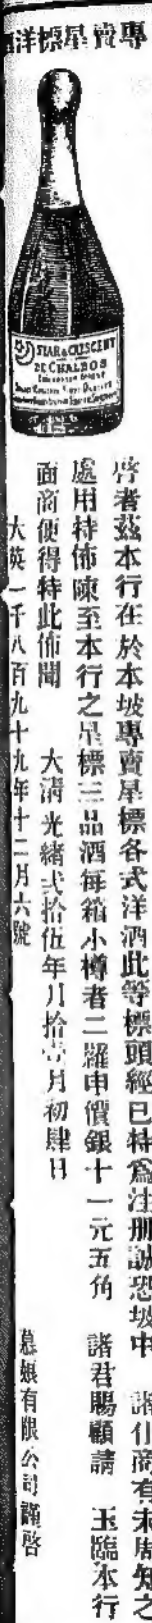 專賣星標洋酒
STAR & CRESCENT
DE CHALBOS
啓者茲本行在於本坡專賣星標各式洋酒此等標頭經已特爲注册誠恐坡中 諸仕商有未周知之
處用特佈陳至本行之星標三品酒每箱小樽者二羅申價銀十一元五角 諸君賜顧請 玉臨本行
面商便得特此佈聞 大清光緒弍拾伍年 月拾 月初肆日
大英一千八百九十九年十二月六號
慕娘有限公司謹啓